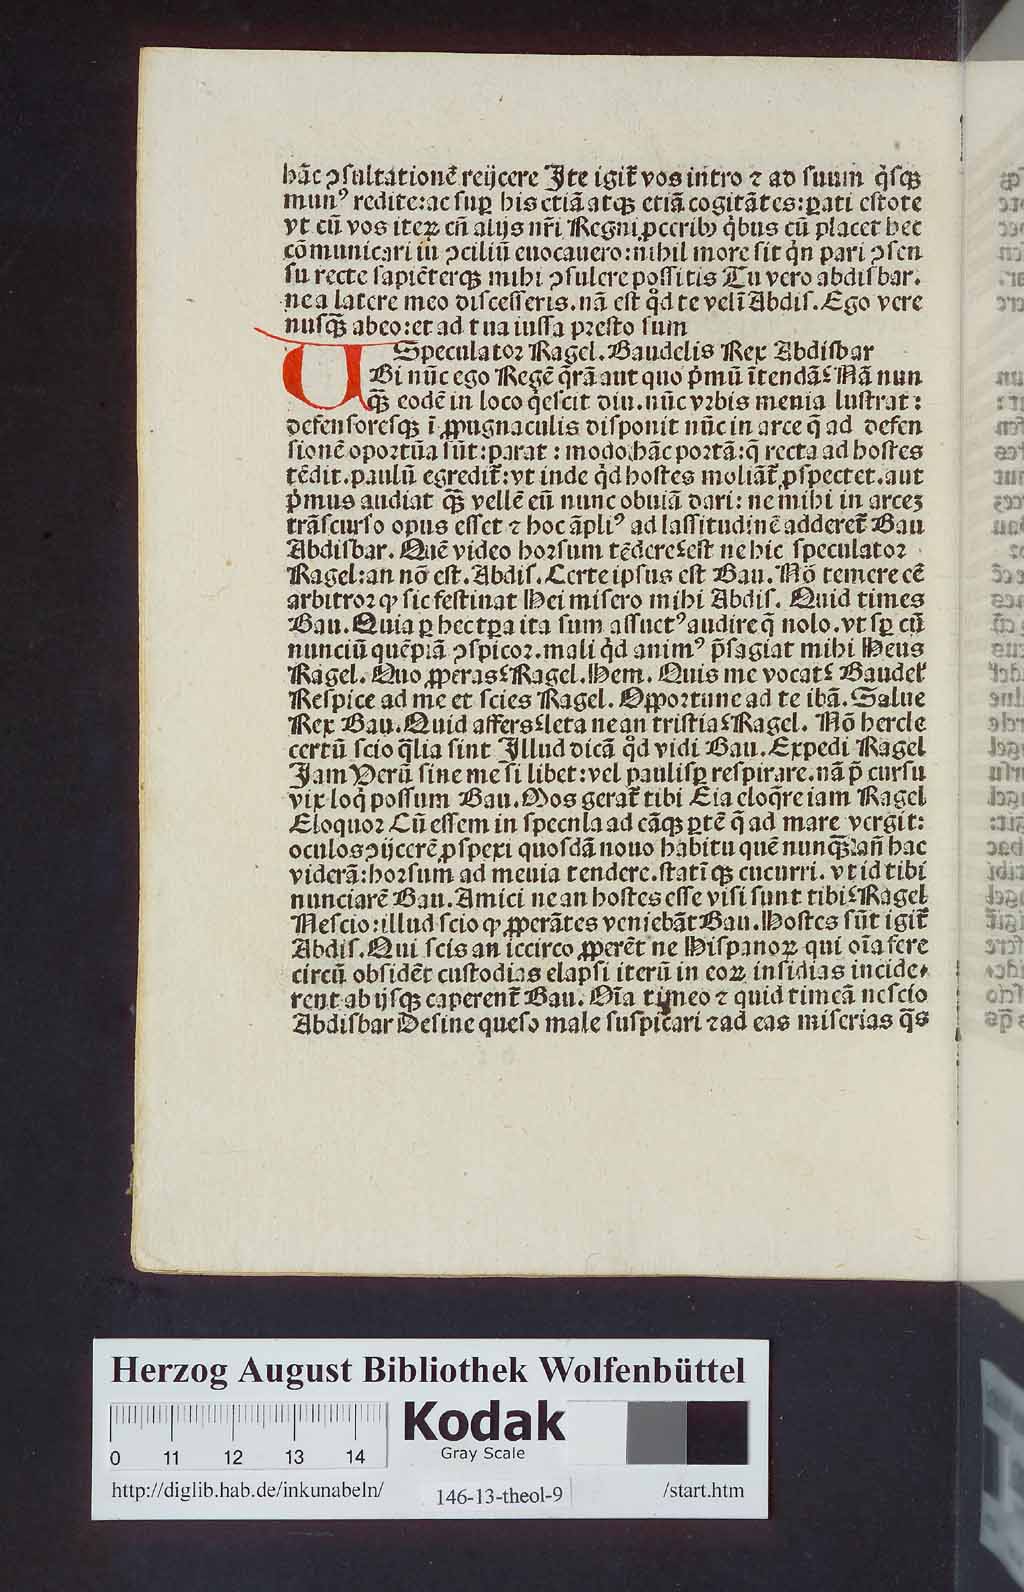 hāc ꝯsultationē reijcere Ite igit᷑ vos intro ⁊ ad suum q̇sqꝫ
munꝰ redite: ac suꝑ his etiā atqꝫ etiā cogitātes: ꝑati estote
vt cū vos iteꝝ cū alijs nr̄i Regni ꝓcerib⁹ q̇bus cū placet hec
cōmunicari in ꝯciliū euocauero: nihil more sit q̇n pari ꝯsen
su recte sapiēterqꝫ mihi ꝯsulere possitis Tu vero abdisbar.
ne a latere meo discesseris. nā est qͦd te velī Abdis. Ego vere
nusqꝫ̄ abeo: et ad tua iussa presto sum
Speculator Ragel. Baudelis Rex Abdisbar
UBi nūc ego Regē q̄rā aut quo p̄mū ītendā? Nā nun
qꝫ̄ eodē in loco q̇escit diu. nūc vrbis menia lustrat:
defensoresqꝫ ī ꝓpugnaculis disponit nūc in arce q̄ ad defen
sionē oportūa sūt: parat: modo hāc portā: q̄ recta ad hostes
tēdit. paulū egredit᷑: vt inde q̇d hostes moliāt᷑ ꝓspectet. aut
p̄mus audiat qꝫ̄ vellē eū nunc obuiā dari: ne mihi in arceꝫ
trāscurso opus esset ⁊ hoc āpliꝰ ad lassitudinē adderet᷑ Bau
Abdisbar. Quē video horsum tēdere? est ne hic speculator
Ragel: an nō est. Abdis. Certe ipsus est Bau. Nō temere eē
arbitror ꝙ sic festinat Hei misero mihi Abdis. Quid times
Bau. Quia ꝑ hec tꝑa ita sum assuctꝰ audire q̄ nolo. vt sꝑ cū
nunciū quēpiā ꝯspicor. mali q̇d animꝰ p̄sagiat mihi Heus
Ragel. Quo ꝓperas? Ragel. Hem. Quis me vocat? Baudel᷑
Respice ad me et scies Ragel. Opportune ad te ibā. Salue
Rex Bau. Quid affers? leta ne an tristia? Ragel. Nō hercle
certū scio q̄lia sint Illud dicā qͦd vidi Bau. Expedi Ragel
Jam Verū sine me si libet: vel paulisꝑ respirare. nā p̄ cursu
vix loq̇ possum Bau. Mos gerat᷑ tibi Eia eloq̄re iam Ragel
Eloquor Cū essem in specnla ad eāqꝫ ꝑtē q̄ ad mare vergit:
oculos ꝯijcerē ꝓspexi quosdā nouo habitu quē nunqꝫ̄ an̄ hac
viderā: horsum ad menia tendere. statīqꝫ cucurri. vt id tibi
nunciarē Bau. Amici ne an hostes esse visi sunt tibi? Ragel
Nescio: illud scio ꝙ ꝓperātes veniebāt Bau. Hostes sūt igit᷑
Abdis. Qui scis an iccirco ꝓperēt ne Hispanoꝝ qui oīa fere
circū obsidēt custodias elapsi iterū in eoꝝ insidias incide
rent ab ijsqꝫ caperent᷑ Bau. Oīa timeo ⁊ quid timeā nescio
Abdisbar Desine queso male suspicari ⁊ ad eas miserias q̄s
Herzog August Bibliothek Wolfenbüttel
Kodak
Gray Scale
0 11 12 13 14
http://diglib.hab.de/inkunabeln/ 146-13-theol-9 /start.htm